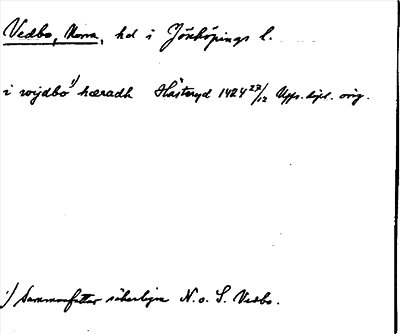 Vedbo, Norra, hd i Jönköpings l.
i wijdbo 1) hæradh Hästeryd 1424 27/12 Upps. dipl. orig.
1) Sammanfattar säkerligen N. o. S. Vedbo.